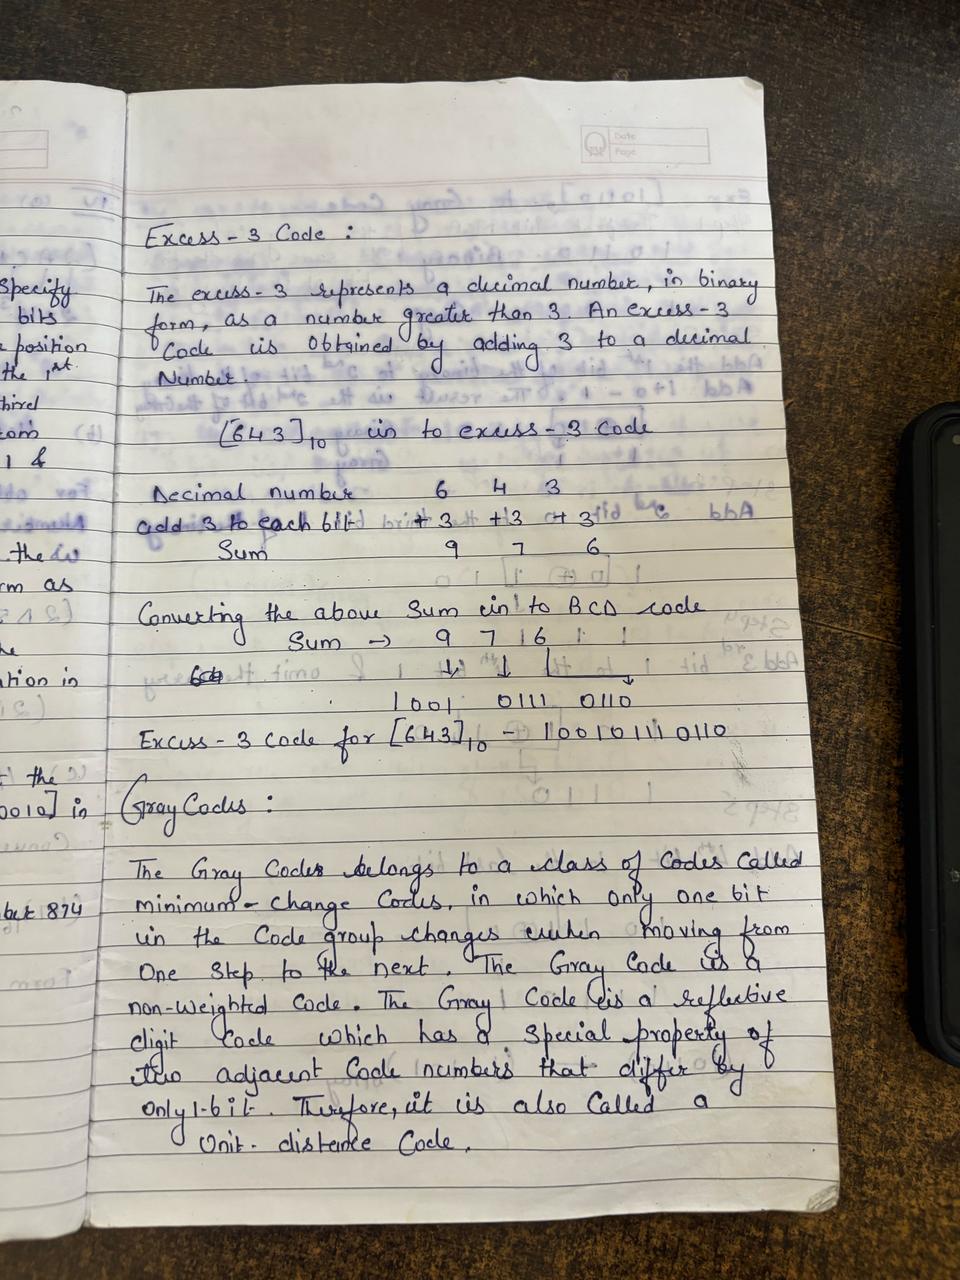 Date
Page
Excess-3 Code :
The excess-3 represents a decimal number, in binary
form, as a number greater than 3. An excess-3
Code is obtained by adding 3 to a decimal
Number.
[643]10 in to excess-3 Code
Decimal number 6 4 3
add 3 to each bit +3 +3 +3
Sum 9 7 6
Converting the above Sum in to BCD code
Sum → 9 7 6
1001 0111 0110
Excess-3 code for [643]10 - 100101110110
Gray Codes :
The Gray Codes belongs to a class of Codes Called
minimum-change Codes, in which only one bit
in the Code group changes when moving from
One Step to the next. The Gray Code is a
non-weighted Code. The Gray Code is a reflective
digit Code which has a special property of
two adjacent Code numbers that differ by
Only 1-bit. Therefore, it is also Called a
Unit-distance Code.
Specify
bits
position
the 1st
third
1 &
the
as
tion in
the
0010] in
874